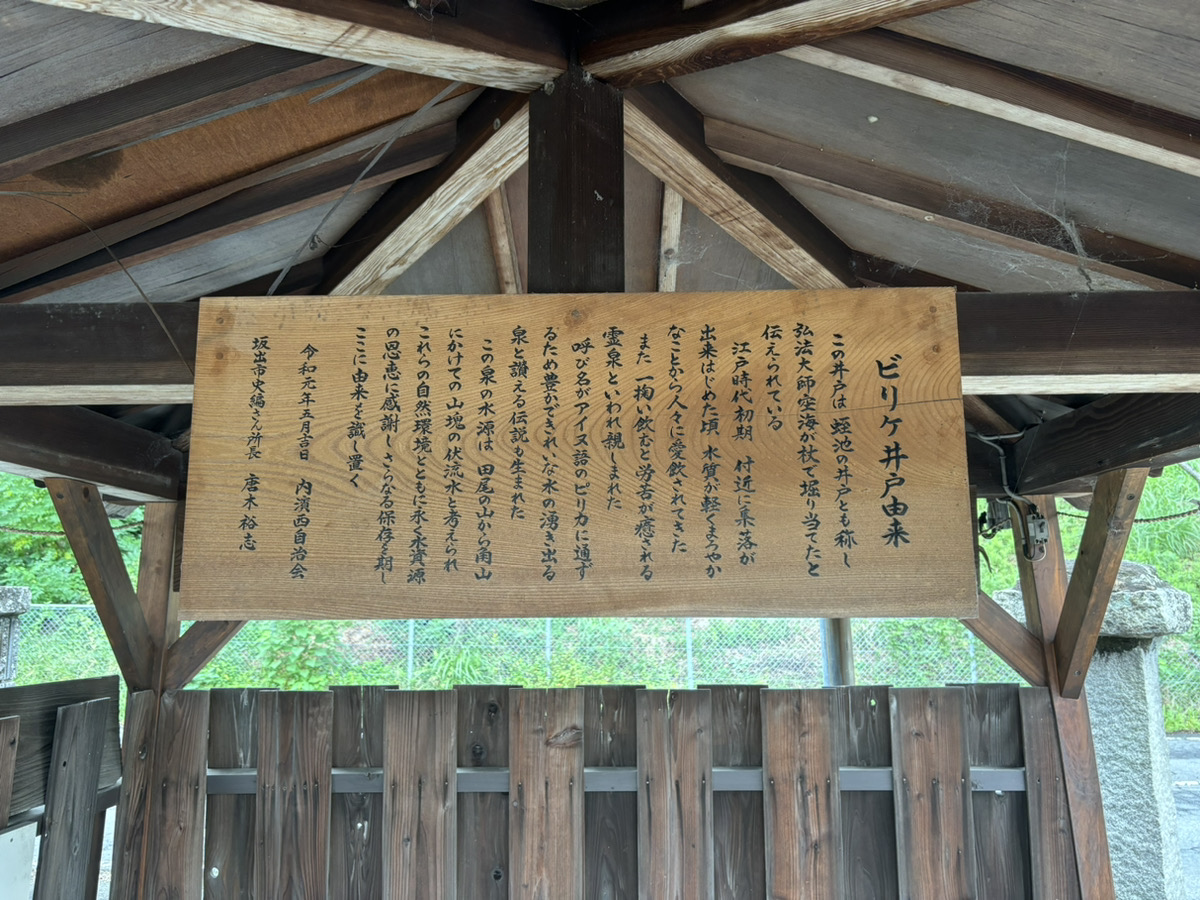 ビリケ井戸由来
この井戸は蛭池の井戸とも称し
弘法大師空海が杖で堀り当てたと
伝えられている
江戸時代初期 付近に集落が
出来はじめた頃 水質が軽くまろやか
なことから人々に愛飲されてきた
また一掬い飲むと労苦が癒される
霊泉といわれ親しまれた
呼び名がアイヌ語のピリカに通ず
るため豊かできれいな水の湧き出る
泉と讃える伝説も生まれた
この泉の水源は 田尾の山から角山
にかけての山塊の伏流水と考えられ
これらの自然環境とともに永く水資源
の恩恵に感謝しさらなる保存を期し
ここに由来を識し置く
令和元年五月吉日 内濱西自治会
坂出市史編さん所長 唐木裕志